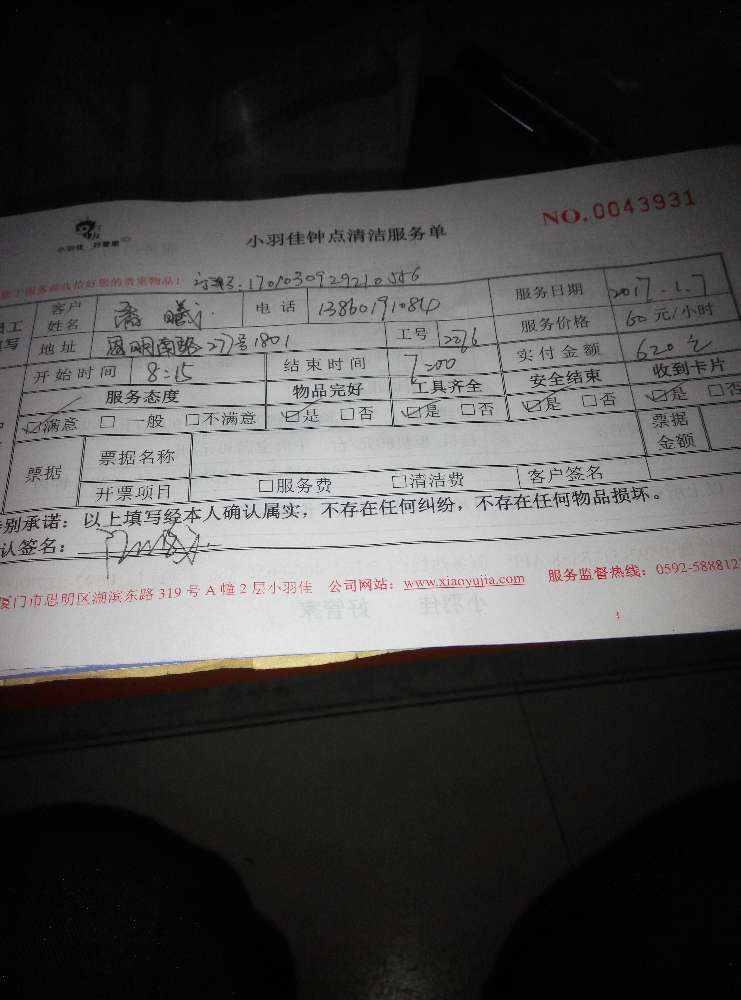 小羽佳 好管家
小羽佳钟点清洁服务单
NO.0043931
您的贵重物品!
客户姓名 电话 服务日期 2017.1.7
地址 思明南路277号1801 工号 2276 服务价格 60元/小时
开始时间 8:15 结束时间 7:00 实付金额 620元
服务态度 物品完好 工具齐全 安全结束 收到卡片
☑满意 □一般 □不满意 ☑是 □否 ☑是 □否 ☑是 □否 ☑是 □否
票据 票据名称 票据金额
开票项目 □服务费 □清洁费 客户签名
别承诺:以上填写经本人确认属实,不存在任何纠纷,不存在任何物品损坏。
认签名:
厦门市思明区湖滨东路319号A幢2层小羽佳 公司网站:www.xiaoyujia.com 服务监督热线:0592-588812